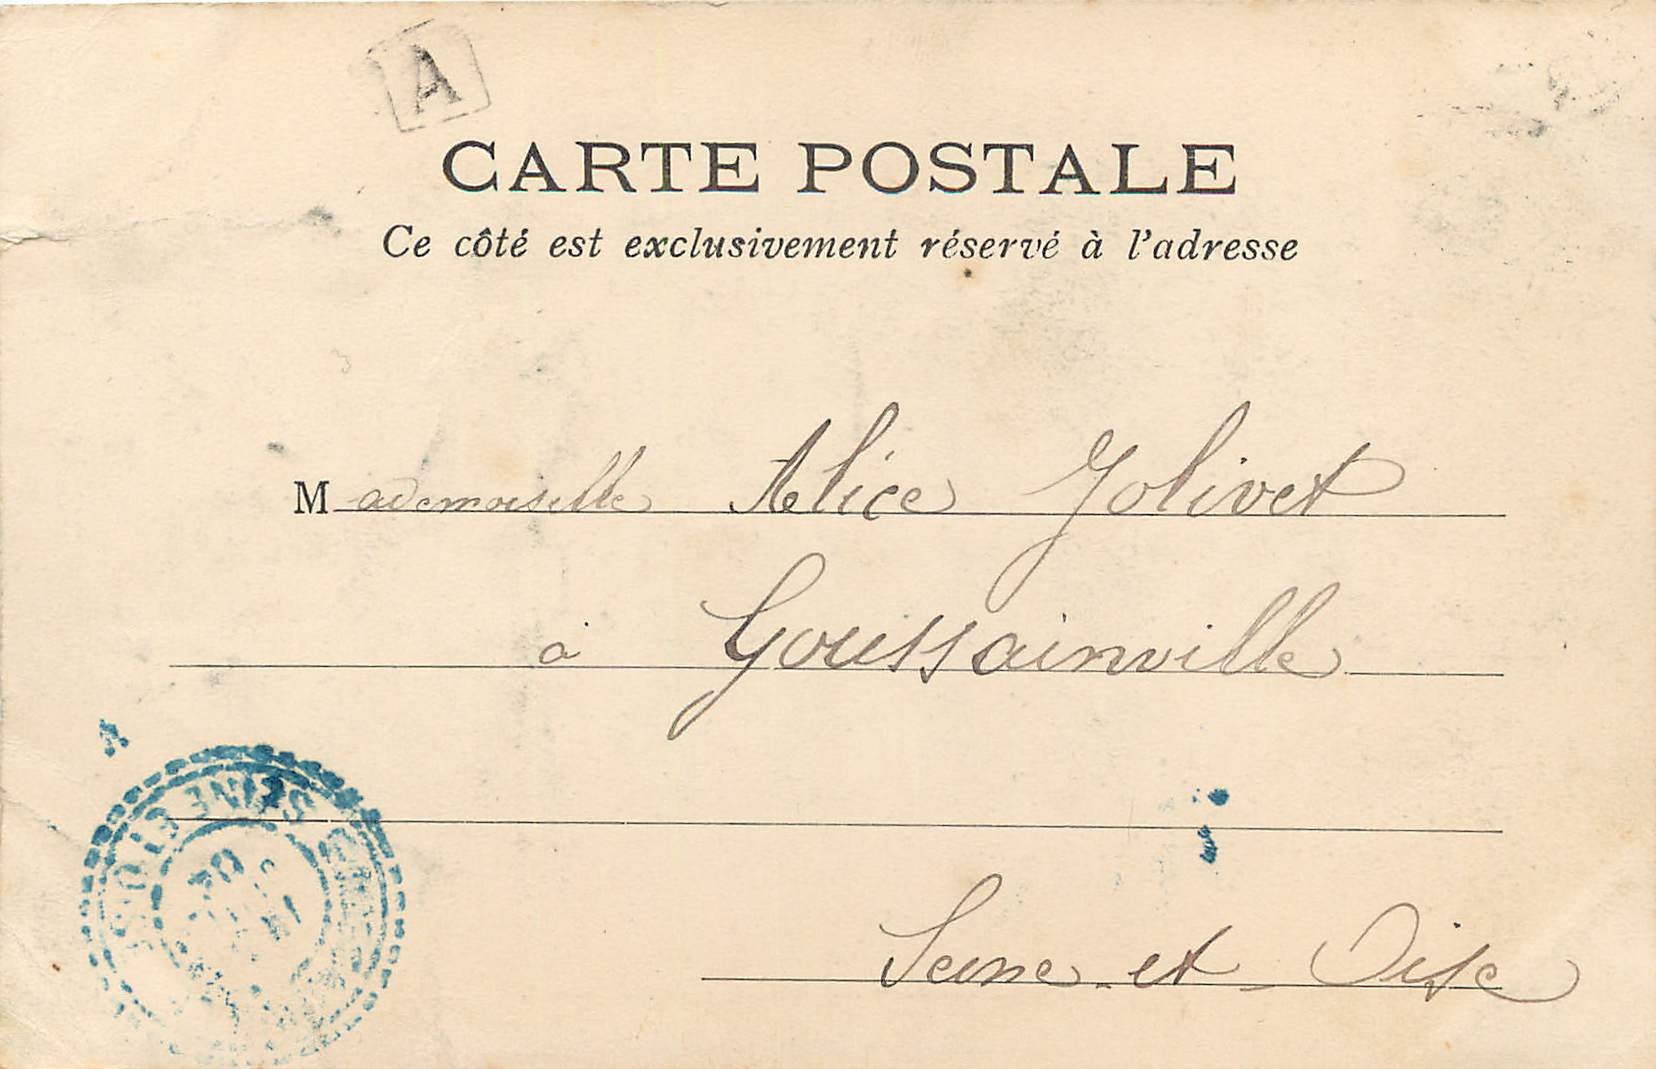 A
CARTE POSTALE
Ce côté est exclusivement réservé à l'adresse
Mademoiselle Alice Jolivet
à Goussainville
Seine-et-Oise
SEINE ET OISE
04